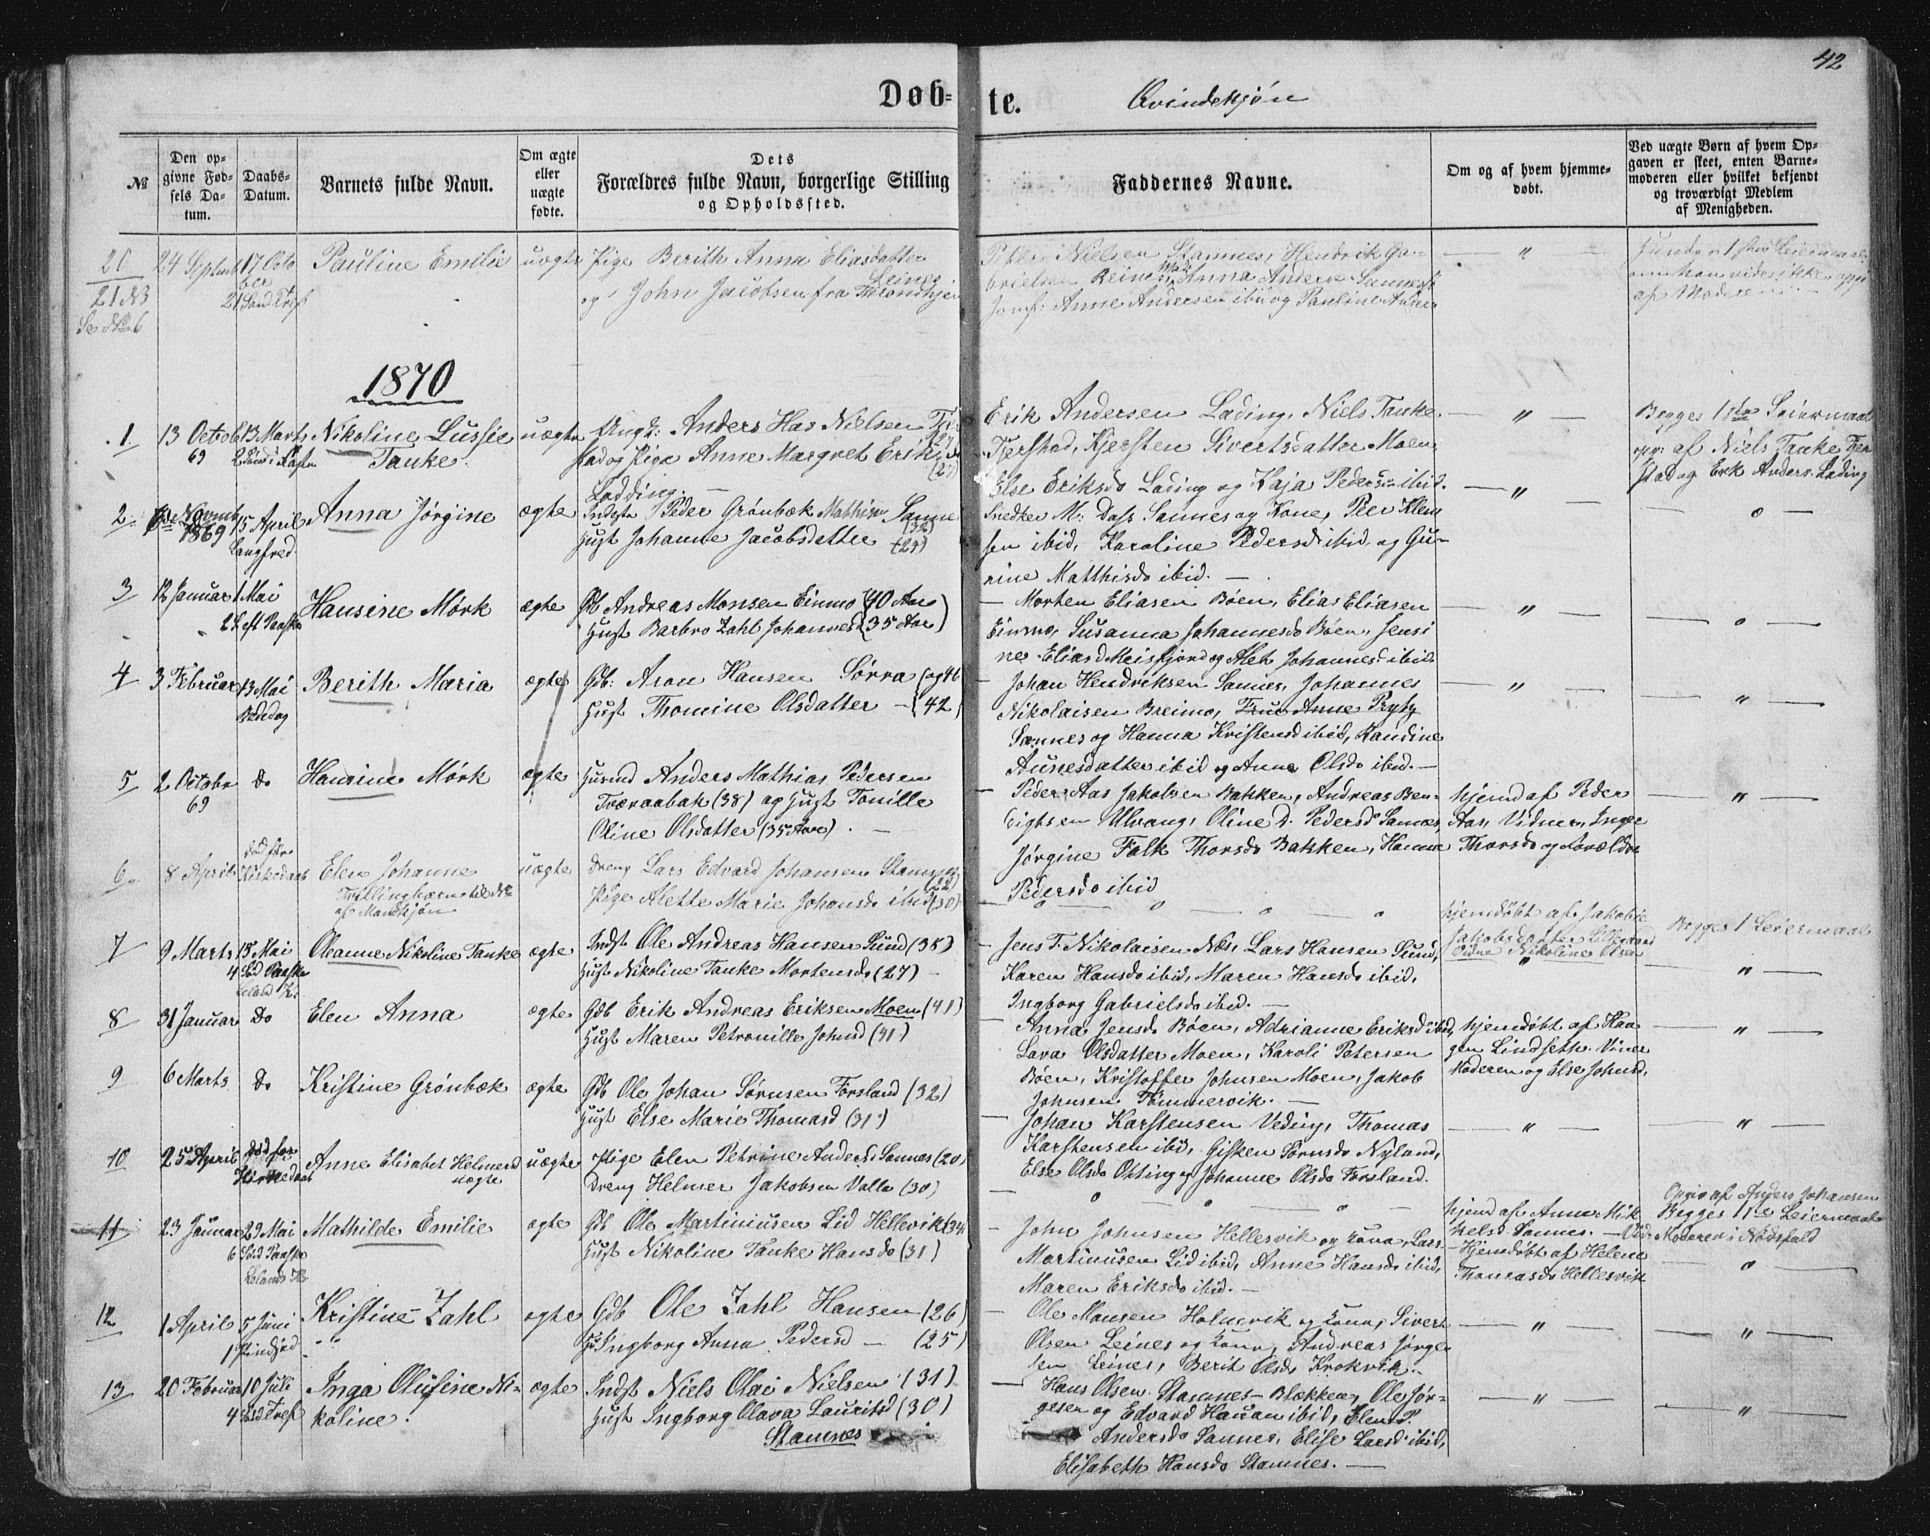 42
Døb-
te.
Qvindekjøn
№
Den op-
givne Fød-
sels Da-
tum.
Daabs-
Datum.
Barnets fulde Navn.
Om ægte
eller
uægte
fødte.
Dets
Forældres fulde Navn, borgerlige Stilling
og Opholdssted.
Faddernes Navne.
Om og af hvem hjemme-
døbt.
Ved uægte Børn af hvem Op-
gaven er skeet, enten Barne-
moderen eller hvilket bekjendt
og troværdigt Medlem
af Menigheden.
20
21 NB
24 Septmb
17 Octo
ber
Pauline Emilie
uægte
Pige Berith Anna Eliasdatter
Leines
og John Jacobsen fra Throndhjem
Nielsen Stamnes, Hendrik Ga-
brielsen
Anna Anders
Jomf: Anne Andersen ibid og Pauline
af Moderen
1870
1
13 Octob
69
13 Marts
2 Sønd i Fasten
Nikoline Lussie
Tanke.
uægte
Ungk: Anders Has Nielsen
stad og Pige Anne Margret Eriksd
Ladding. —
Erik Andersen Lading, Niels Tanke
Fjerstad, Kjersten Sivertsdatter Moen,
Else Eriksdo Lading og Kaja Peders ibid.
— „ —
Begges 1ste Leiermaal
opg: af Niels Tanke
stad og Erik Anders: Lading
2
Novmb
1869
15 April
Langfred.
Anna Jørgine
ægte
Inderst Peder Grønbæk Mathis
(32)
Hust Johanne Jacobsdatter (29)
Snedker M: Dass Sannes og Kone, Peer Klem
sen ibid, Karoline Pedersd ibid og Gu-
rine Matthisdo ibid. —
— „ —
— o —
3
12 Januar
1 Mai
2 S eft Paaske
Hansine Mørk
ægte
Gb Andreas Monsen Einmo (40 Aar)
Hust Barbro Zahl Johannesd (35 Aar)
— Morten Eliasen Bøen, Elias Eliasen
Einmo, Susanna Johannesdo Bøen, Jensi
ne Eliasd Meisfjord og Aleth Johannesd ibid.
— „ —
— o —
4
3 Februar
13 Mai
Bededag
Berith Maria
ægte
Gdb: Aron Hansen Sørra (og 46
Hust Thomine Olsdatter — (42)
— Johan Hendriksen Sannes, Johannes
Nikolaisen Breimo, Frue Anne Pryty
Sannes og Hanna Kristensd ibid, Randine
Aunesdatter ibid og Anne Olsdo ibid. —
— „ —
— „ —
5
2 Octobr
69
Do
Hansine Mørk
ægte
Husmd Anders Mathias Pedersen
Tværaabak (38) og Hust Tonille
Oline Olsdatter (35 Aar). —
— Peder Aas Jakobsen Bakken, Andreas Ben-
gigtsen Ulvang, Oline D. Pedersd Sannes,
Jørgine Falk Thorsdo Bakken, Hanna
Pedersdo ibid
hjemd af Peder
Aas, Vidner, Inger
Thorsdo og Forældre
— „ —
6
8 April
død før
Kirkedaab
Elen Johanne
Tvillingbarn til №
af Mandkjøn
uægte
Dreng Lars Edvard Johansen Stamnes
(22)
Pige Alette Marie Johansdo ibid (30)
— o — o — o — o
hjemdøbt af Jakobie
Jakobsdatter
Vidne Nikoline Olsen
Begges 1 Leiermaal
7
9 Marts
15 Mai
4 Sød Paaske
Leland K.
Oleanne Nikoline Tanke
ægte
Indst Ole Andreas Hansen Sund (38)
Hust Nikoline Tanke Mortensdo (27) —
— Jens T. Nikolaisen Næs, Lars Hansen Sund,
Karen Hansdo ibid, Maren Hansdo ibid,
Ingborg Gabrielsdo ibid. —
„
— „ —
8
31 Januar
Do
Elen Anna
ægte
Gdb Erik Andreas Eriksen Moen (41)
Hust Maren Petronille Johnsd (31)
— Anna Jensdo Bøen, Adrianne Eriksd ibid,
Lava Olsdatter Moen, Karoli Petersen
Bøen, Kristoffer Johnsen Moen, Jakob
Johnsen Tømmervik. —
hjemdøbt af Haa
gen Lindseth. Viner
Moderen og Else Johnsd,
— „ —
9
6 Marts
Do
Kristine Grønbæk
ægte
Gdb Ole Johan Sørnsen Forsland (32)
Hust Else Marie Thomasd (31)
— Johan Karstensen Veding, Thomas
Karstensen ibid, Gisken Sørnsdo Nyland,
Else Olsdo Otting og Johanne Olsdo Forsland.
— „ —
— „ —
10
25 April
Død før
Kirkedaab
Anne Elisabet Helmersd
uægte
uægte
Pige Elen Petrine Andersd Sannes (20)
Dreng Helmer Jakobsen Valla (30)
— o — o — o
hjemd af Anne Mik
kelsd Sannes.
Opgiv af Anders Johansen
Begges 1ste Leiermaal
Obs: Moderen i Nødsfald
11
23 Januar
29 Mai
6 Sød Paaske
Lelands K.
Mathilde Emilie
ægte
Gdb Ole Martiniusen Lid Hellesvik (34)
Hust Nikoline Tanke Hansdo (31)
— John Johnsen Hellesvik og kone, Lars
Martinusen Lid ibid, Anne Hansdo ibid,
Maren Eriksdo ibid. —
— Hjemdøbt af Helene
Thomasdo Hellesvik
— o —
12
1 April
5 Juni
1 Pindsed
Kristine Zahl
ægte
Gdb Ole Zahl Hansen (26)
Hu Ingborg Anna Pedersd — (25)
— Ole Monsen Holmvik og kone, Sivert
Olsen Leines og kone, Andreas Jørgen
sen Leines, Berit Olsdo Krokvik. —
— „ —
— „ —
13
20 Februar
10 Juli
4 Sød Tref
Inga Olufine Ni-
koline.
ægte
Indst Niels Olai Nielsen (31)
Hust Ingborg Olava Lauritsd (30)
Stamnes
— Hans Olsen Stamnes-Blækken, Ole Jør-
gesen og Edvard Hansen ibid, Elen P.
Andersdo Sannes, Elise Larsd ibid,
Elisabeth Hansdo Stamnes. —
— „ —
— „ —